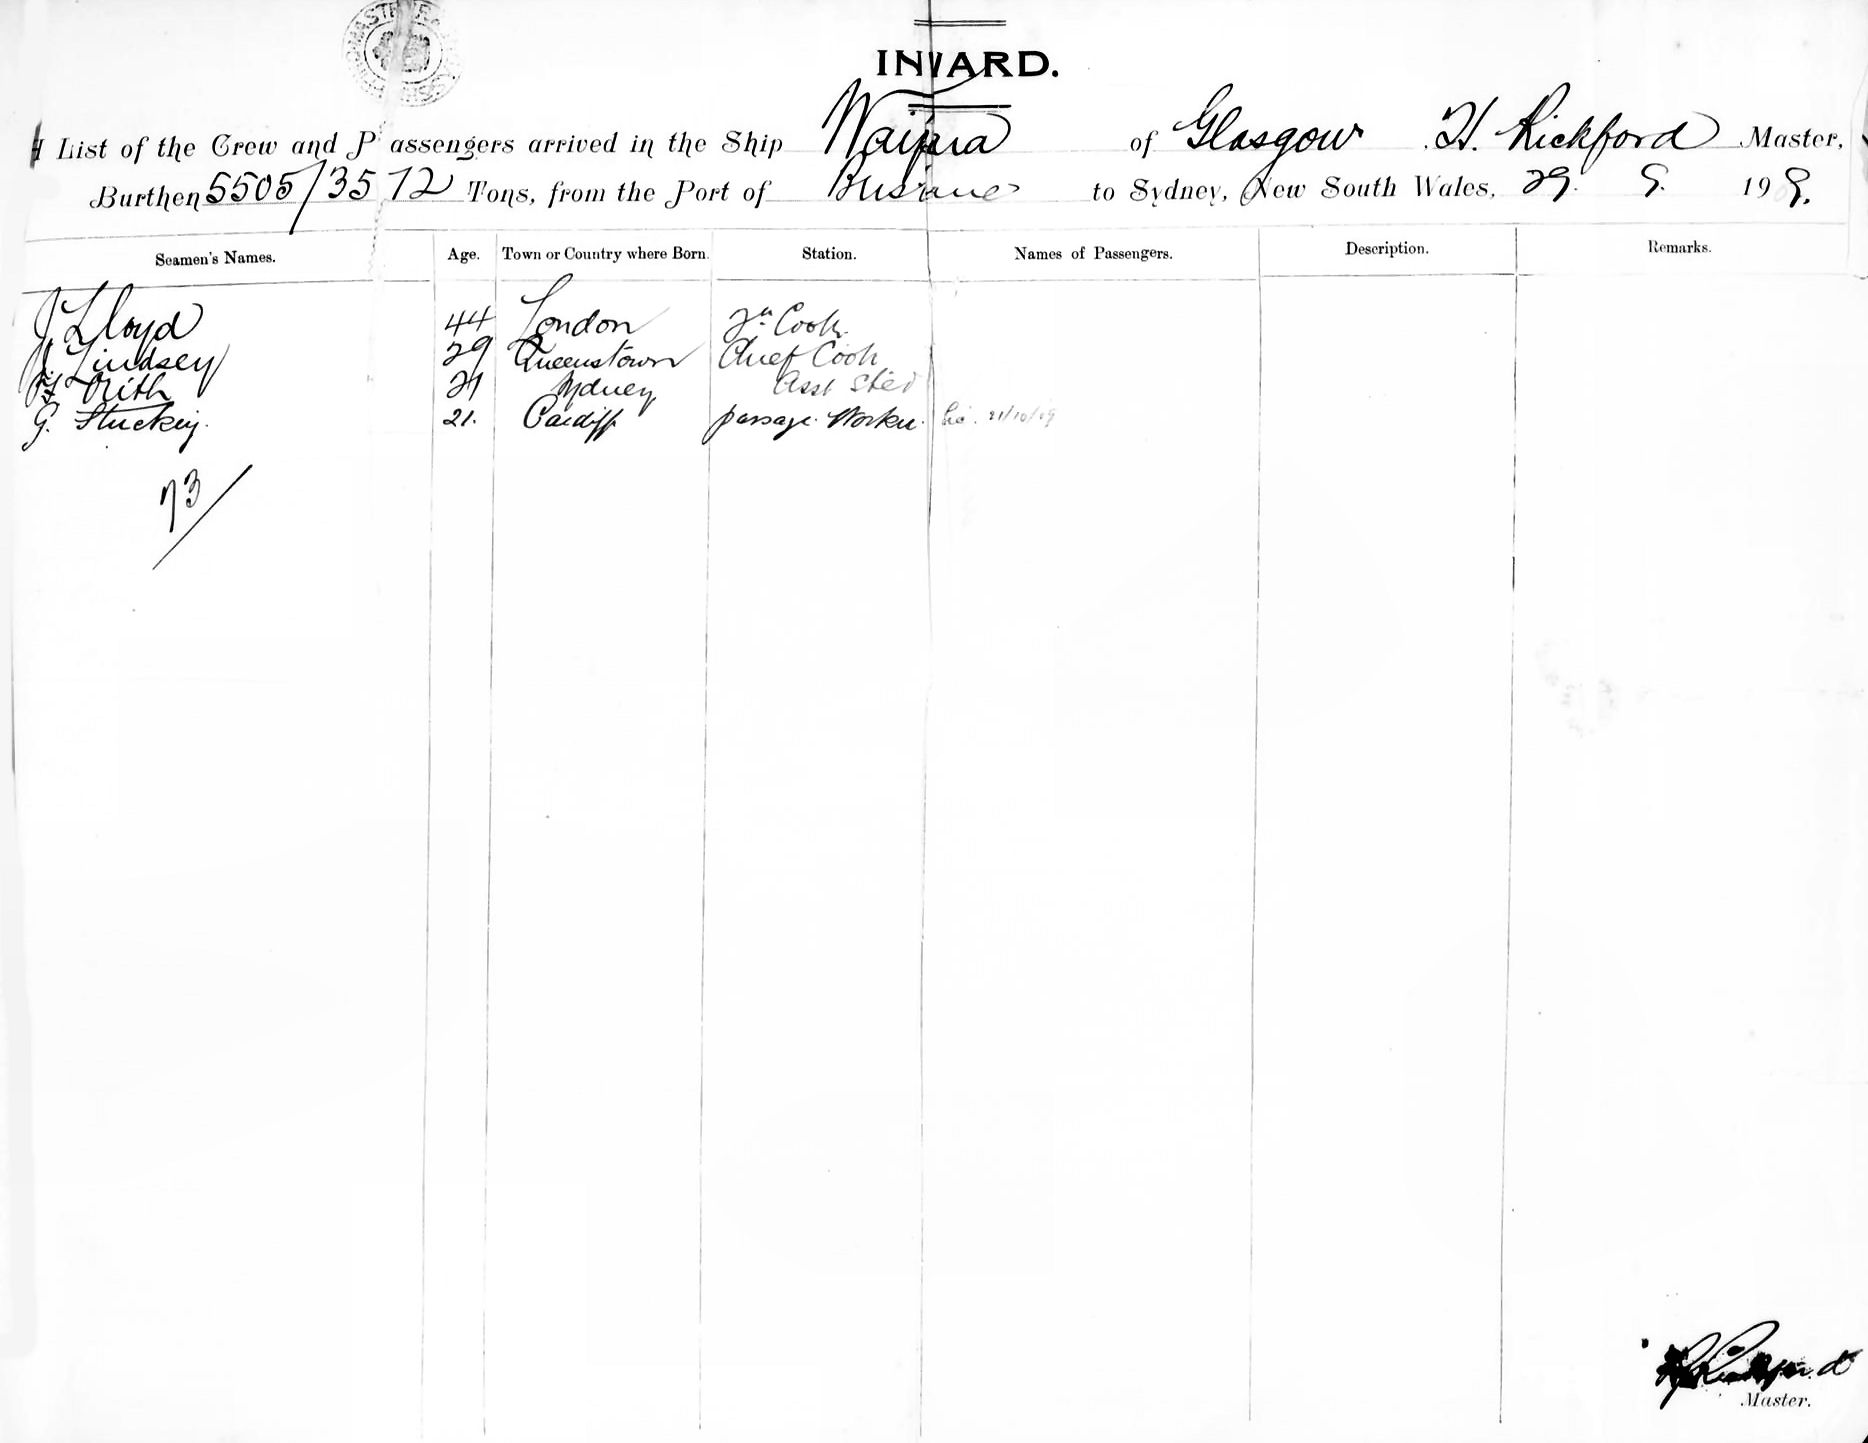 INWARD.
A List of the Crew and Passengers arrived in the Ship Waipara of Glasgow H. Rickford Master,
Burthen 5505/3572 Tons, from the Port of Brisbane to Sydney, New South Wales, 29. 9. 1909.
Seamen's Names. Age. Town or Country where Born. Station. Names of Passengers. Description. Remarks.
J Lloyd 44 London 2nd Cook
J Lindsey 29 Queenstown Chief Cook
21 Sydney Asst Std
G. Stuckey. 21. Cardiff passage Worker 21/10/09
73/
Master.